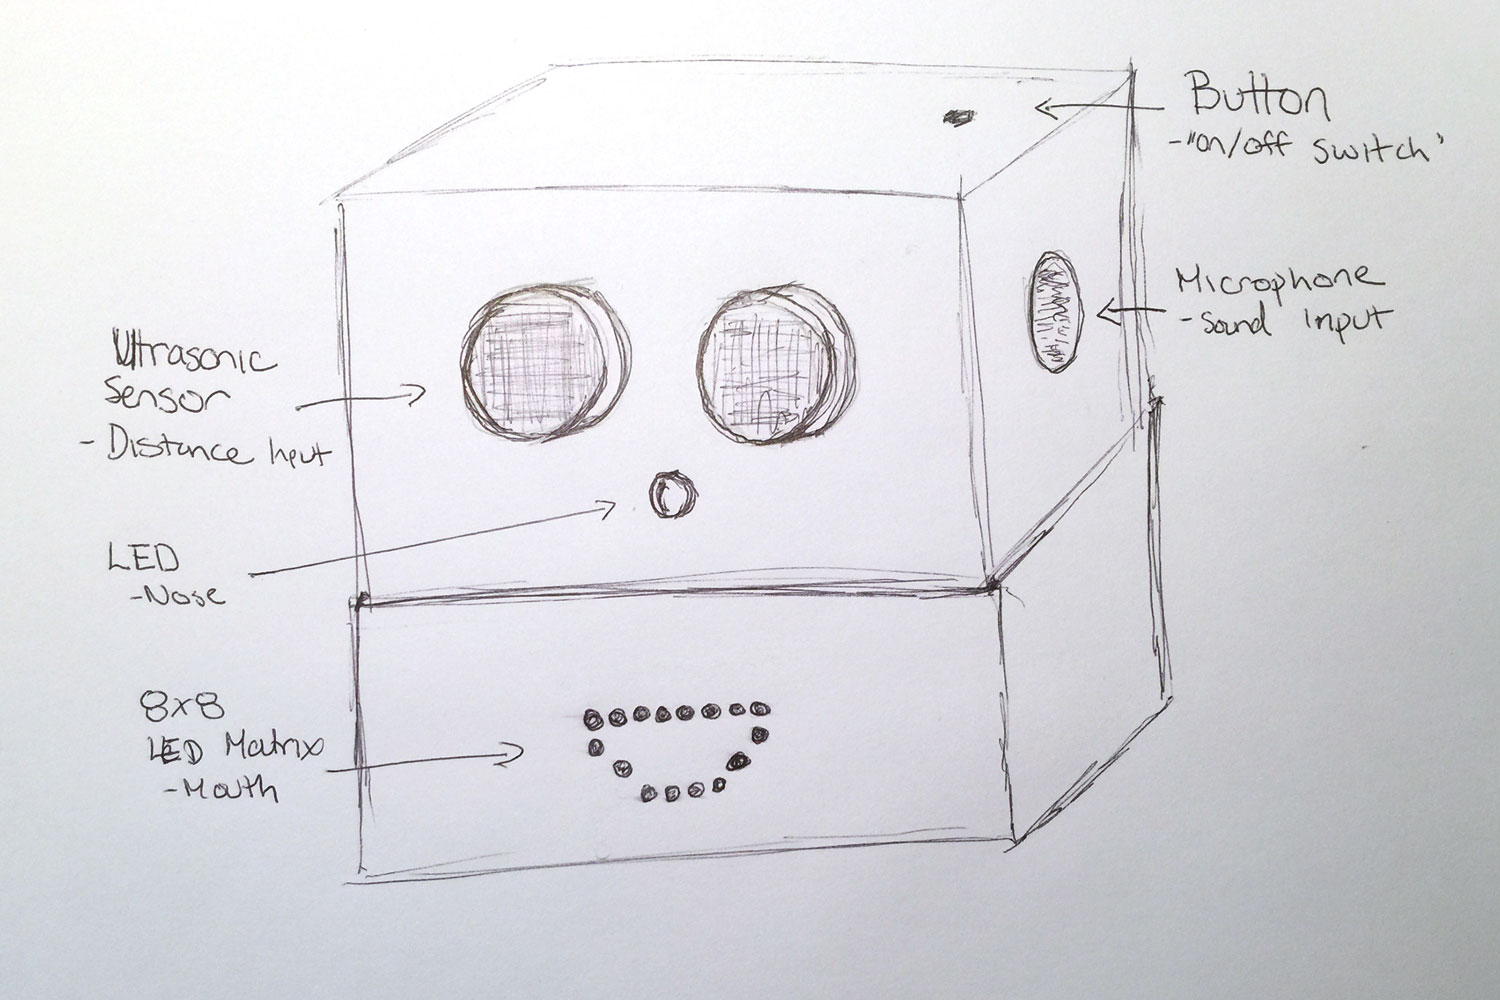 Button
-"on/off switch"
Microphone
-Sound Input
Ultrasonic
Sensor
- Distance Input
LED
-Nose
8x8
LED Matrix
-Mouth